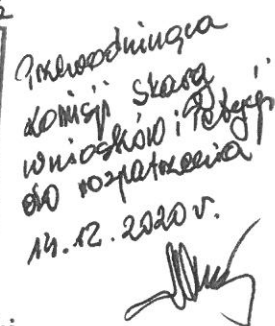 Przewodnicząca
Komisji Skarg
wniosków i Petycji
do rozpatrzenia
14.12.2020 r.